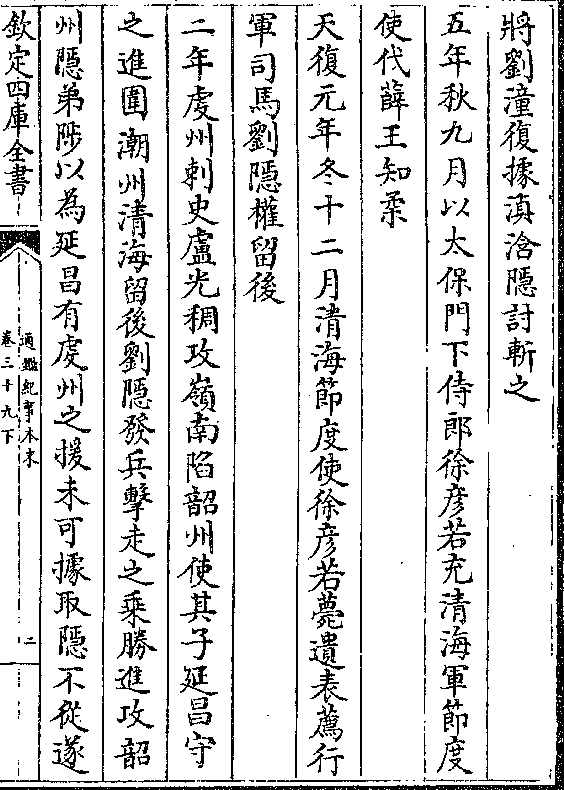 將劉潼復據湞浛隱討斬之
五年秋九月以太保門下侍郎徐彦若充清海軍節度
使代薛王知柔
天復元年冬十二月清海節度使徐彦若薨遺表薦行
軍司馬劉隱權留後
二年䖍州刺史盧光稠攻嶺南陷韶州使其子延昌守
之進圍潮州清海留後劉隱發兵擊走之乘勝進攻韶
州隱弟陟以為延昌有䖍州之援未可據取隱不從遂
欽定四庫全書
通鑑紀事本末
卷三十九下
二